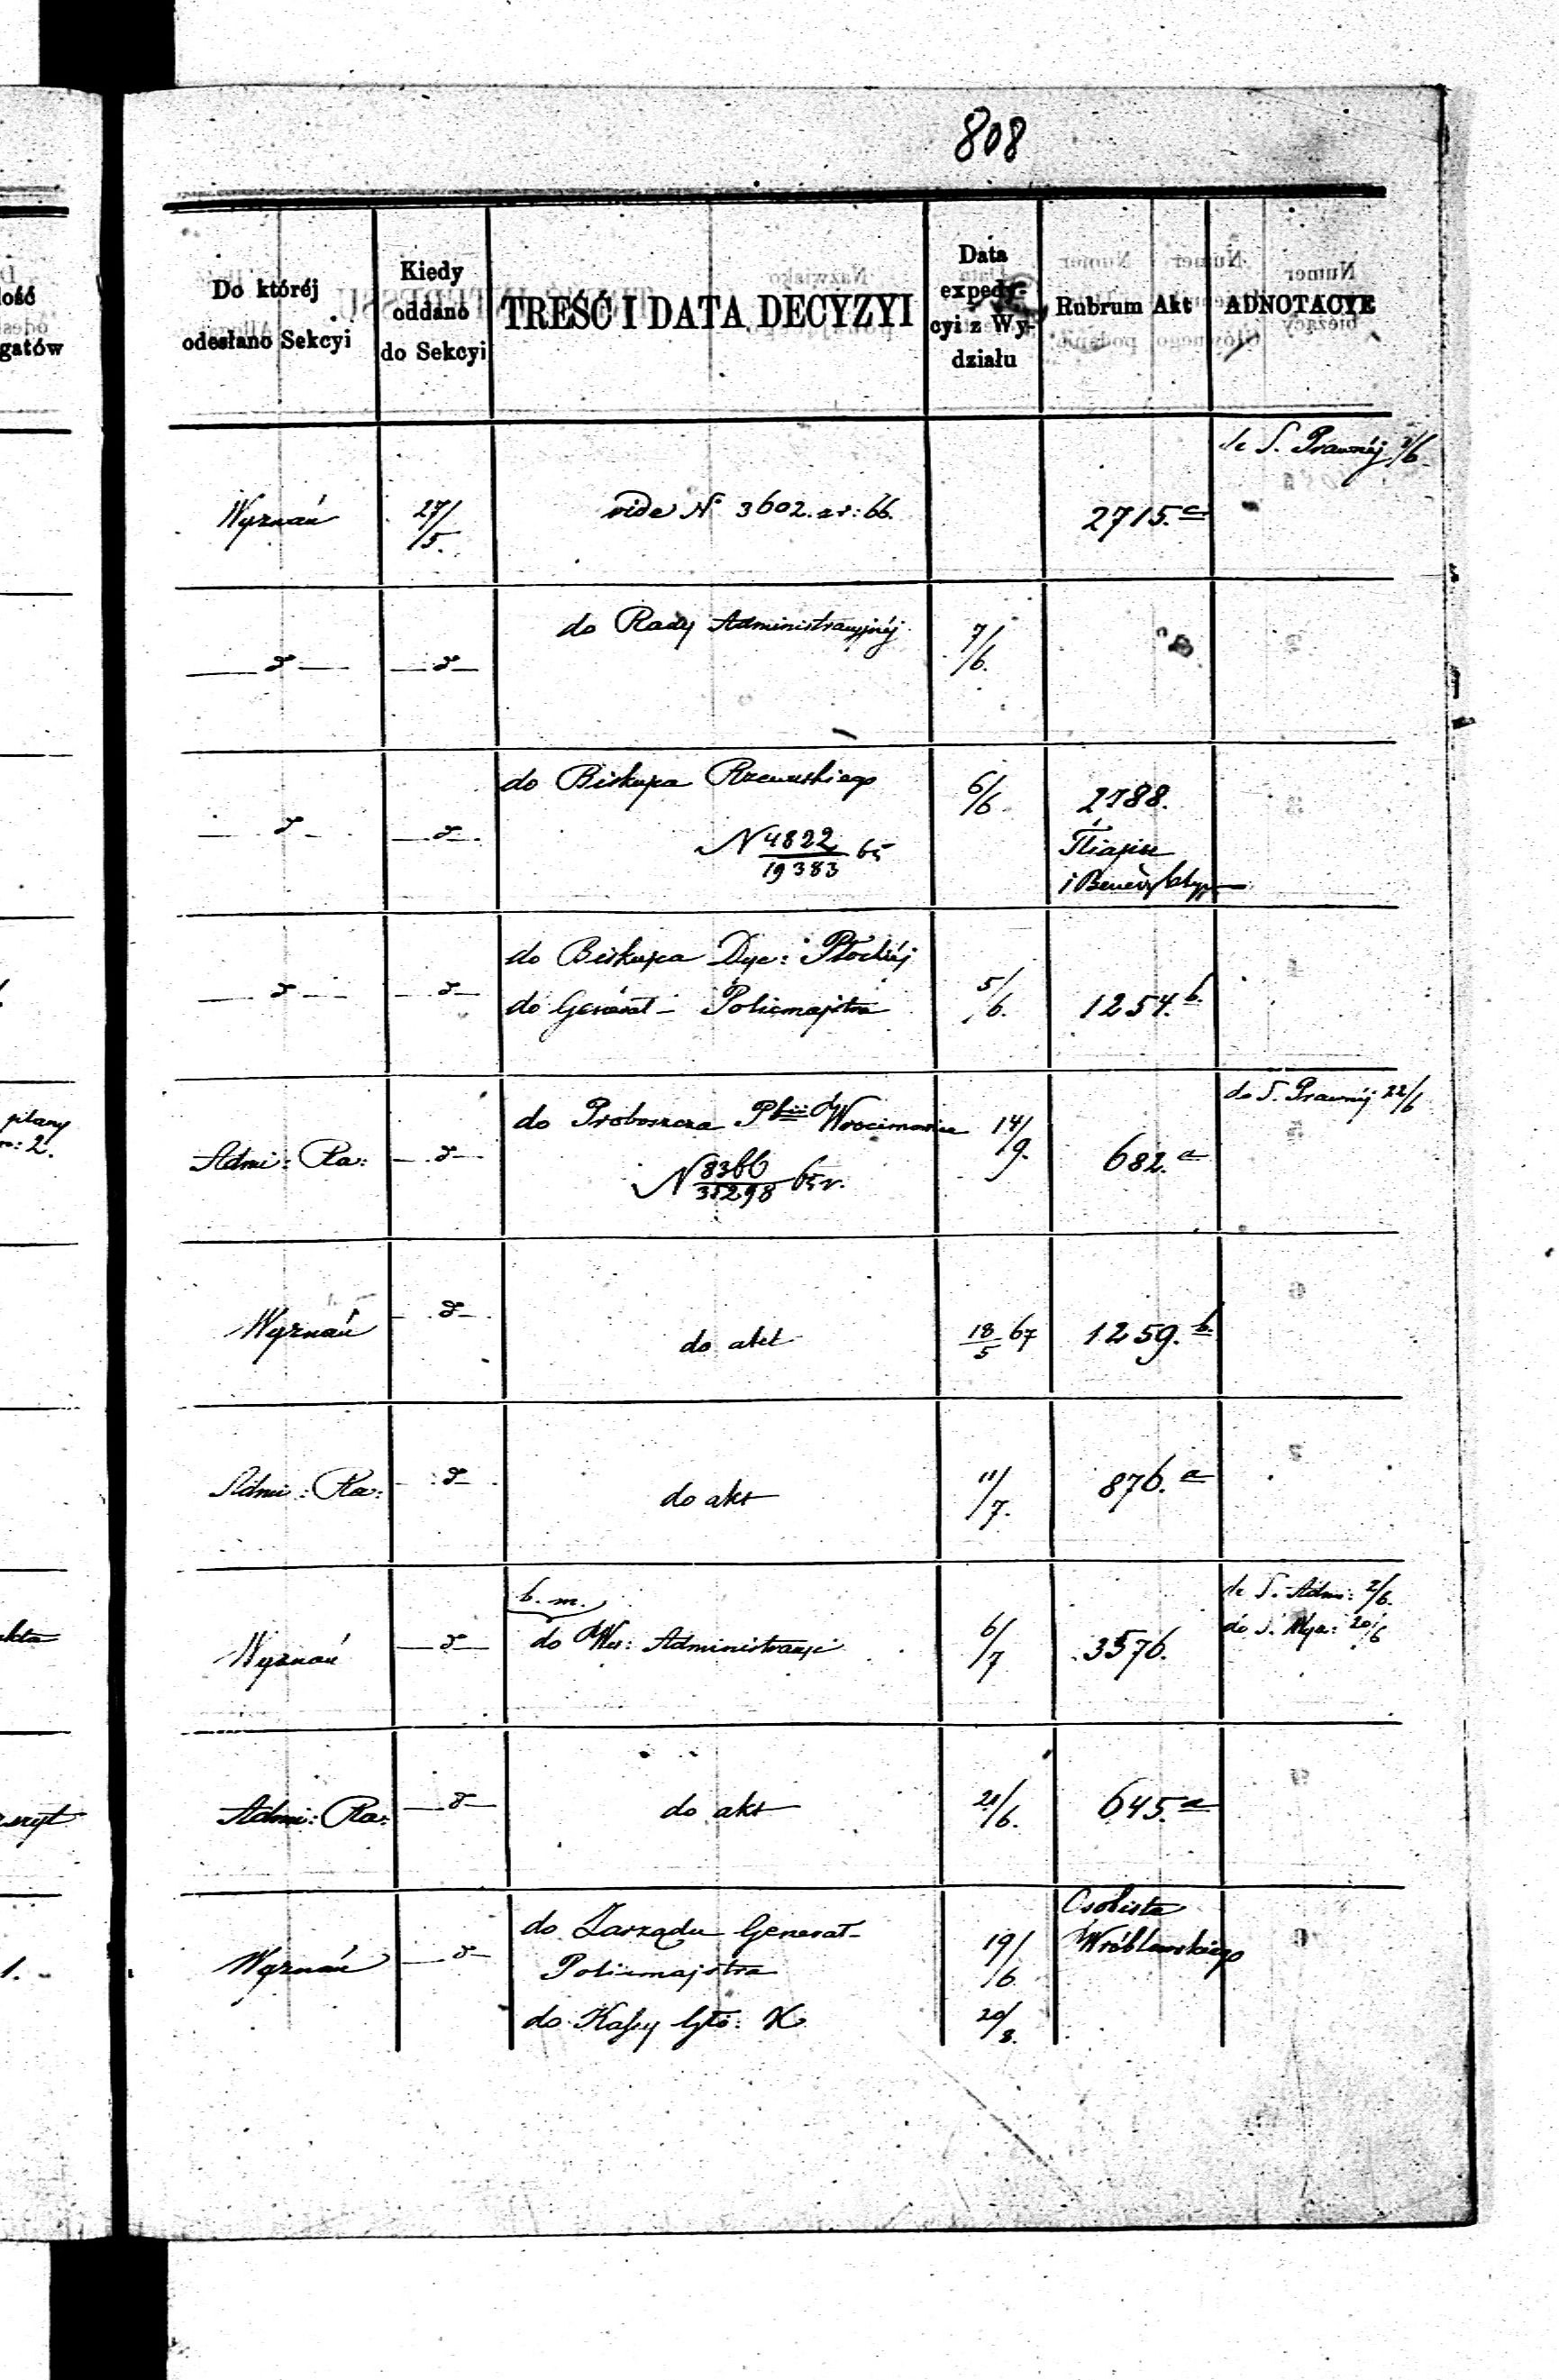 808
Do któréj odesłano Sekcyi
Kiedy oddano do Sekcyi
TREŚĆ I DATA DECYZYI
Data expedycyi z Wydziału
Rubrum Akt
ADNOTACYE
do S. Prawnéj 2/6
Wyznań 27/5. vide N° 3602. ar: 66. 2715.a
do Rady Administracyjnéj 7/6.
do Biskupa Rzewuskiego 6/6 2788.
N 4822/19383 65
i Benedykt
do Biskupa Dyc: Płockiéj
do Generał- Policmajstra 5/6. 1254.b.
do S. Prawnéj 22/6
do Proboszcza Pfii Wrocimowice 14/9.
Admi: Ra: 682.a
N 8366/31298 65 r.
Wyznań do akt 18/5 67 1259.b.
Admi: Ra: do akt 11/7. 876.a
b. m. do S. Admi: 2/6.
Wyznań do Wy: Administracyi 6/7 3576. do S. Wyz: 20/6
Admi: Ra: do akt 21/6. 645.a
Osobiste
do Zarządu Generał- 19/6 Wróblewskiego
Wyznań Policmajstra
do Kassy Głó: K 20/8.
ność
gatów
plany
2.
akta
1.